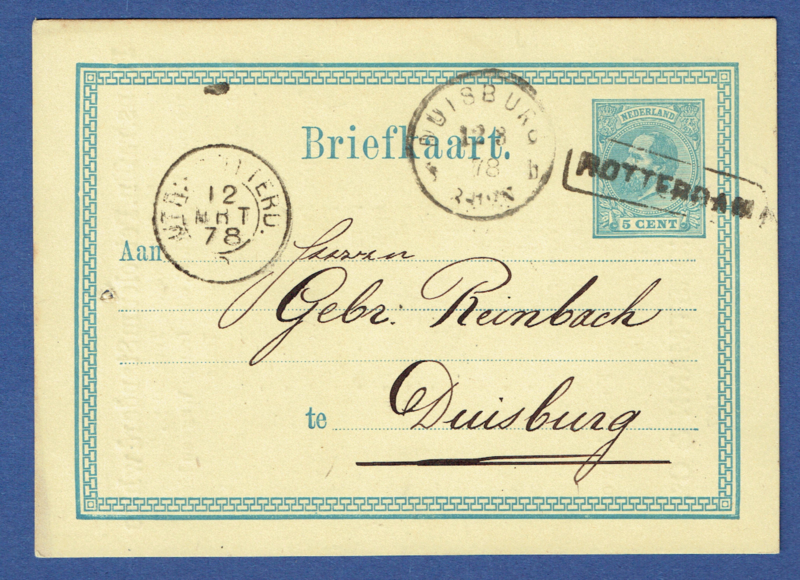 Briefkaart.
NEDERLAND
5 CENT
DUISBURG
12 3
78
ROTTERDAM
12
MRT
78
Aan Herren
Gebr. Reinbach
te Duisburg